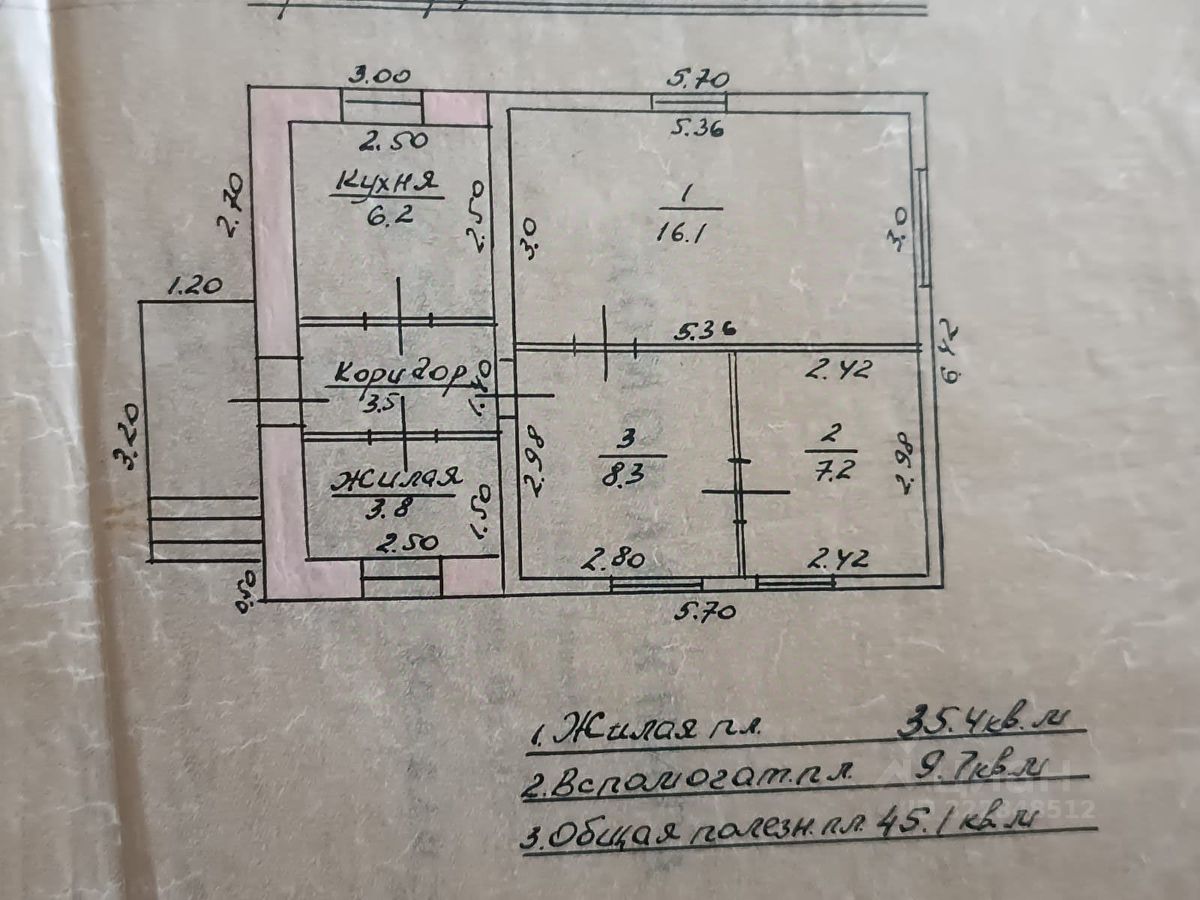 3.00
5.70
2.50
5.36
Кухня
6.2
2.50
2.70
1
16.1
3.0
3.0
1.20
5.36
6.42
2.42
Коридор
3.5
3.20
3
8.3
2
7.2
2.98
2.98
Жилая
3.8
1.50
2.50
2.80
2.42
0.50
5.70
1. Жилая пл. 35.4 кв.м
2. Вспомогат. пл. 9.7 кв.м
3. Общая полезн. пл. 45.1 кв.м